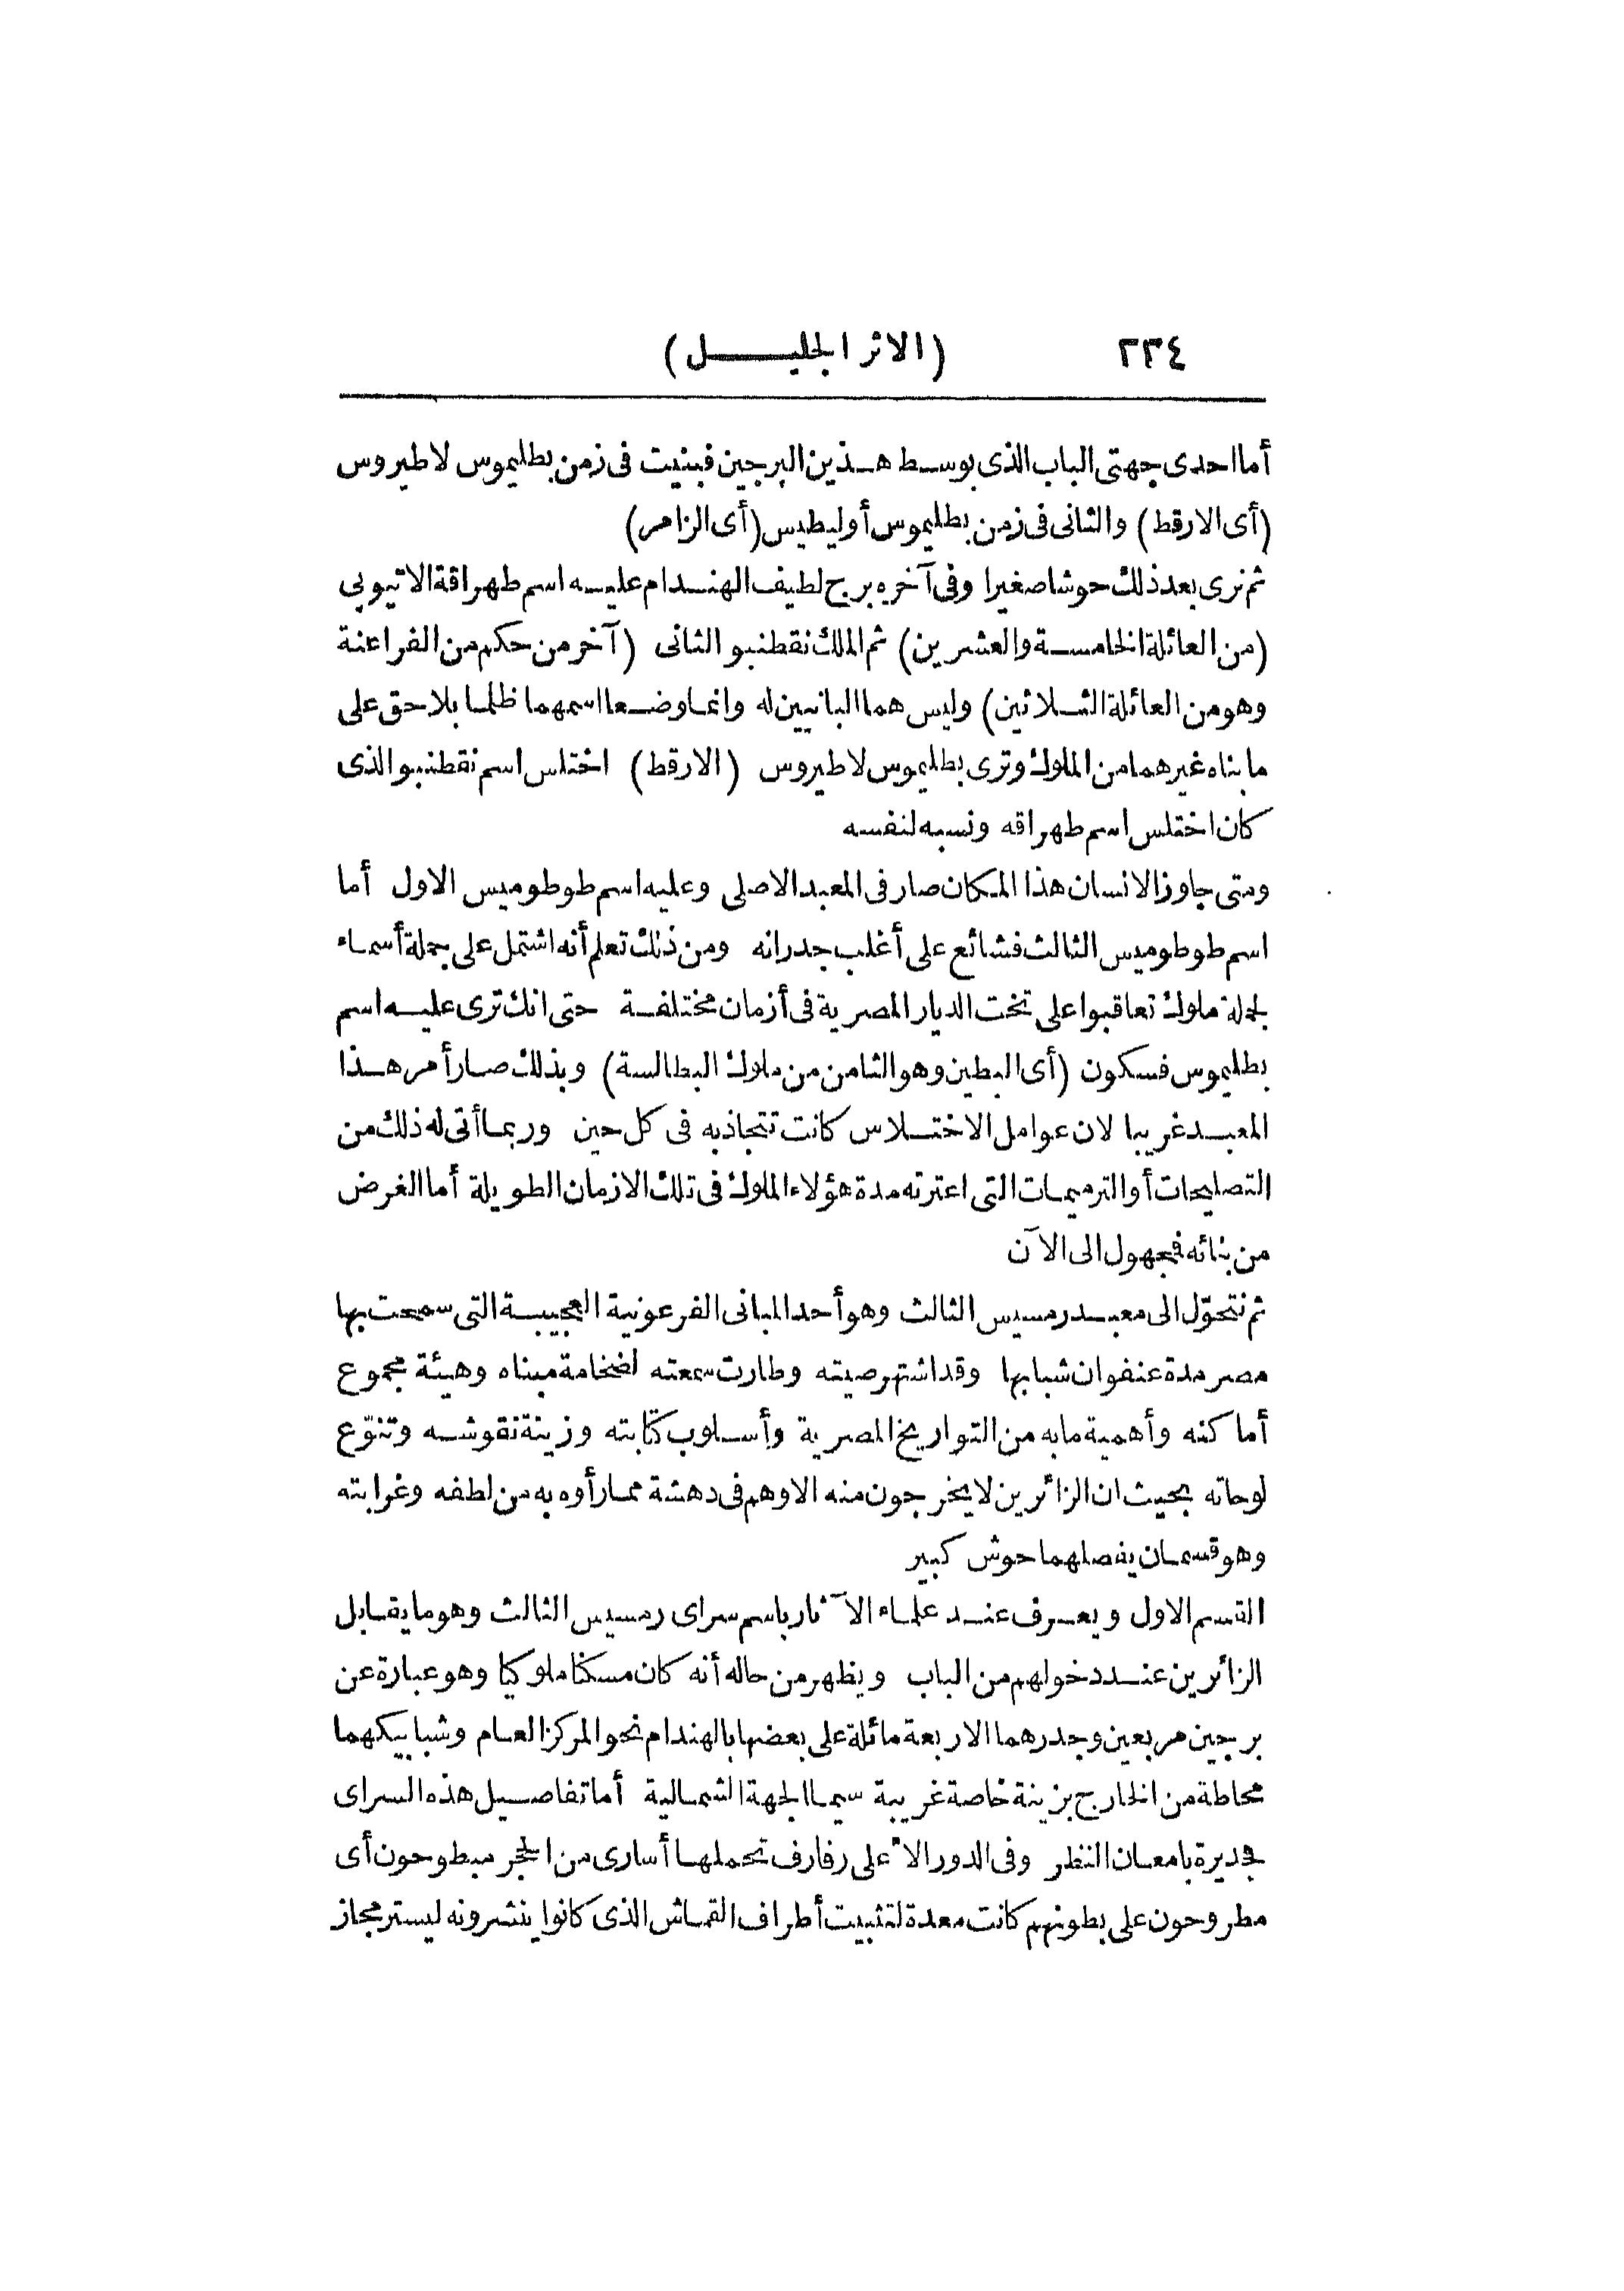 ٢٣٤ (الاثر الجليل)
أما احدى جهتى الباب الذى بوسط هذين البرجين فبنيت فى زمن بطليموس لاطيروس
(أى الارقط) والثانى فى زمن بطليموس أوليطيس (أى الزامر)
ثم نرى بعد ذلك حوشا صغيرا وفى آخره برج لطيف الهندام عليه اسم طهراقة الاتيوبى
(من العائلة الخامسة والعشرين) ثم الملك نقطنبو الثانى (آخر من حكم من الفراعنة
وهو من العائلة الثلاثين) وليس هما البانيين له وانما وضعا اسمهما ظلما بلا حق على
ما بناه غيرهما من الملوك وترى بطليموس لاطيروس (الارقط) اختلس اسم نقطنبو الذى
كان اختلس اسم طهراقه ونسبه لنفسه
ومتى جاوز الانسان هذا المكان صار فى المعبد الاصلى وعليه اسم طوطوميس الاول أما
اسم طوطوميس الثالث فشائع على أغلب جدرانه ومن ذلك تعلم أنه اشتمل على جملة أسماء
لجملة ملوك تعاقبوا على تخت الديار المصرية فى أزمان مختلفة حتى انك ترى عليه اسم
بطليموس فسكون (أى البطين وهو الثامن من ملوك البطالسة) وبذلك صار أمر هذا
المعبد غريبا لان عوامل الاختلاس كانت تتجاذبه فى كل حين وربما أتى له ذلك من
التصليحات أو الترميمات التى اعترته مدة هؤلاء الملوك فى تلك الازمان الطويلة أما الغرض
من بنائه فمجهول الى الآن
ثم نتحوّل الى معبد رمسيس الثالث وهو أحد المبانى الفرعونية العجيبة التى سمحت بها
مصر مدة عنفوان شبابها وقد اشتهر صيته وطارت سمعته لضخامة مبناه وهيئة مجموع
أماكنه وأهمية مابه من التواريخ المصرية وأسلوب كتابته وزينة نقوشه وتنوّع
لوحاته بحيث ان الزائرين لا يخرجون منه الا وهم فى دهشة مما رأوه به من لطفه وغرابته
وهو قسمان يفصلهما حوش كبير
القسم الاول ويعرف عند علماء الآثار باسم سراى رمسيس الثالث وهو ما يقابل
الزائرين عند دخولهم من الباب ويظهر من حاله أنه كان مسكنا ملوكيا وهو عبارة عن
برجين مربعين وجدرهما الاربعة مائلة على بعضها بالهندام نحو المركز العام وشبابيكهما
محاطة من الخارج بزينة خاصة غريبة سيما الجهة الشمالية أما تفاصيل هذه السراى
فجديرة بامعان النظر وفى الدور الأعلى رفارف تحملها أسارى من الحجر مبطوحون أى
مطروحون على بطونهم كانت معدة لتثبيت أطراف القماش الذى كانوا ينشرونه ليستر مجاز